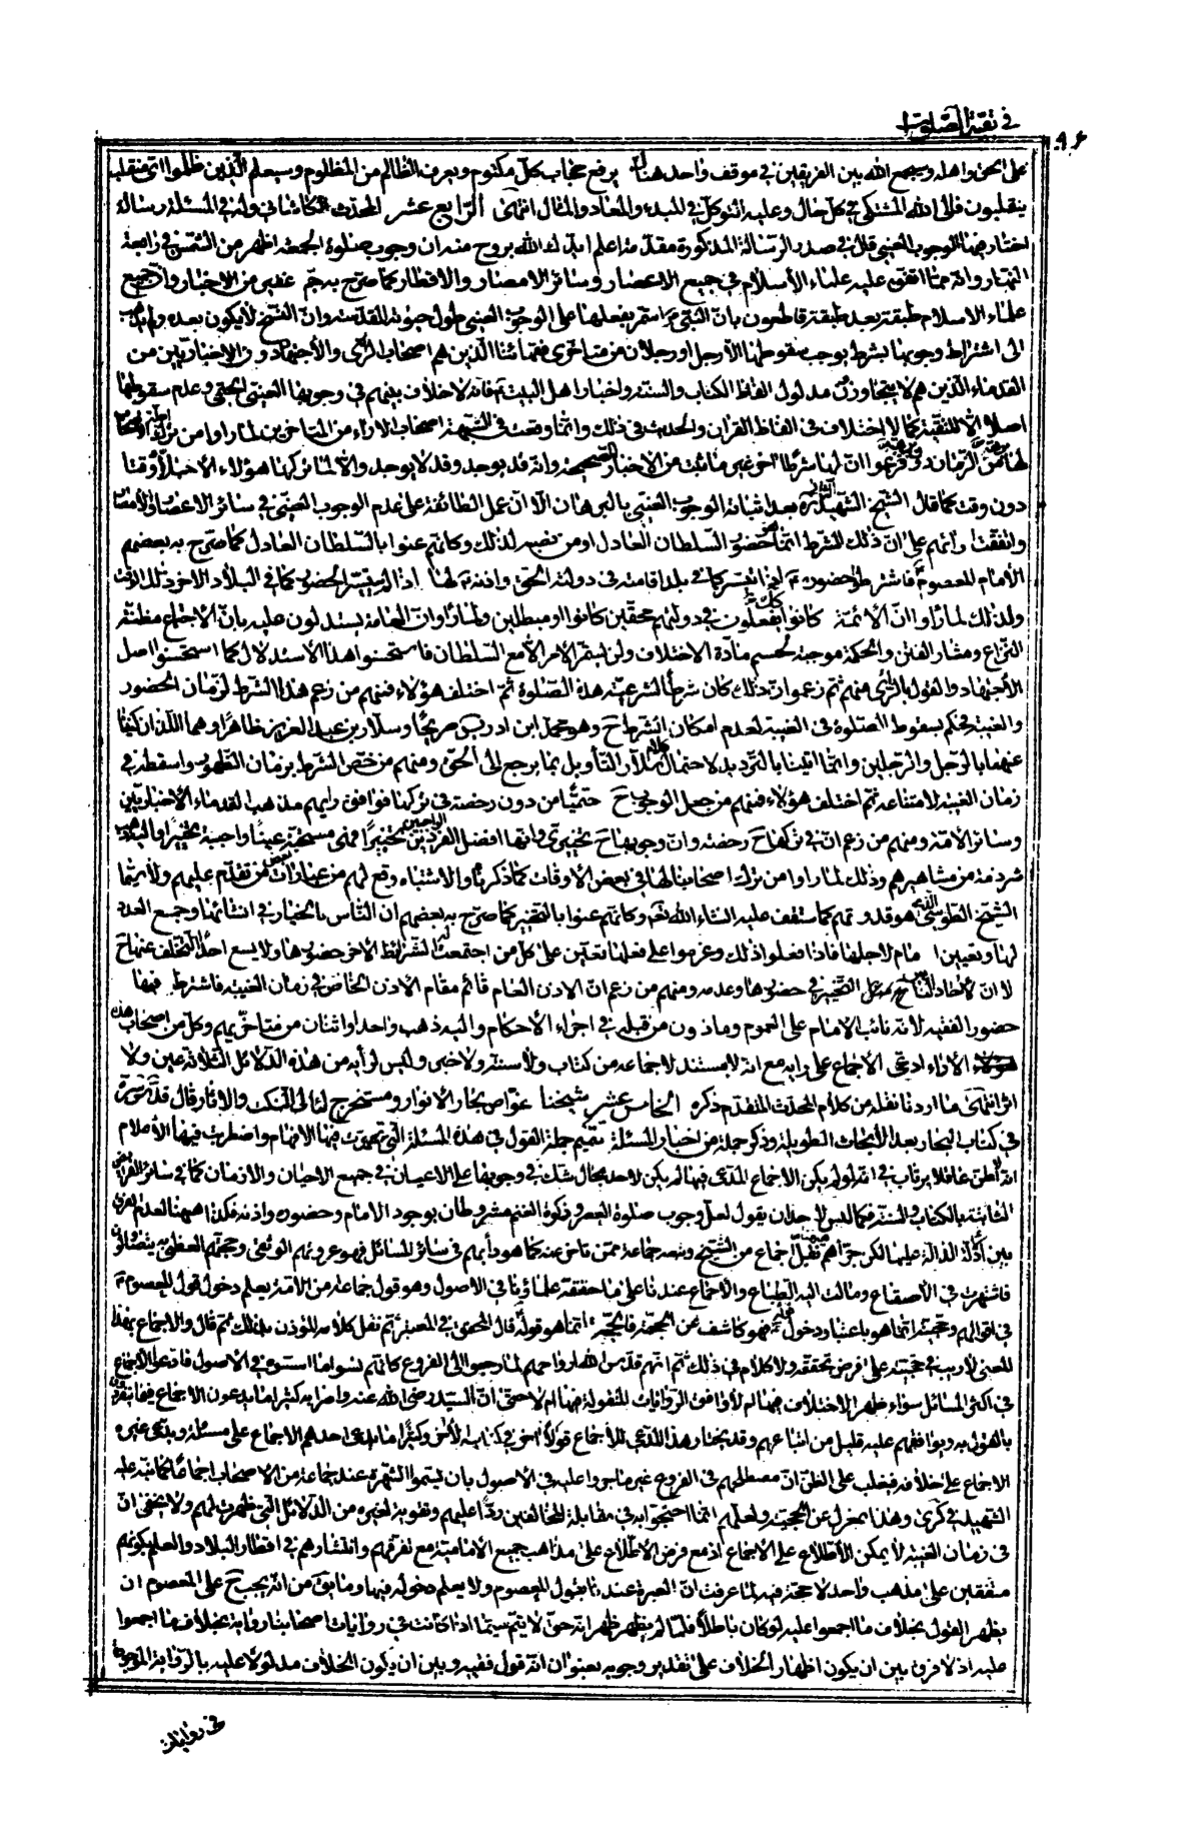 في بقية الصلوات
على الحق واهله وسيجمع الله بين الفريقين في موقف واحد هنالك يرفع حجاب كل مكتوم ويعرف الظالم من المظلوم وسيعلم الذين ظلموا اي منقلب
ينقلبون فالى الله المشتكى في كل حال وعليه التوكل في المبدء والمعاد والمئال انتهى الرابع عشر المحدث الكاشاني وله في المسئلة رسالة
اختار فيها الوجوب العيني قال في صدر الرسالة المذكورة مقدمة اعلم ايدك الله بروح منه ان وجوب صلوة الجمعة اظهر من الشمس في رابعة
النهار وانه مما اتفق عليه علماء الأسلام في جميع الاعصار وسائر الامصار والاقطار كما صرح به جم غفير من الاخيار وان جميع
علماء الاسلام طبقة بعد طبقة قاطعون بان النبي ص استمر بفعلها على الوجوب العيني طول حيوته المقدسة وان النسخ لا يكون بعده ولم يذهب
الى اشتراط وجوبها بشرط يوجب سقوطها الا رجل او رجلان من متاخري فقهائنا الذين هم اصحاب الرأي والاجتهاد دون الاخباريين من
القدماء الذين هم لا يتجاوزون مدلول الفاظ الكتاب والسنة واخبار اهل البيت ع فانه لا خلاف بينهم في وجوبها العيني الحتمي وعدم سقوطها
اصلا الا للتقية كما لا اختلاف في الفاظ القران والحديث في ذلك وانما وقعت في الشبهة اصحاب الاراء من المتاخرين لما راوا من ترك اجلة اصحابنا
لها برهة من الزمان دون برهة فزعموا ان لها شرطا اخر غير ما ثبت من الاخبار الصحيحة وانه قد يوجد وقد لا يوجد والا لما تركها هؤلاء الاجلاء وقتا
دون وقت كما قال الشيخ الشهيد ره بعد اثباته الوجوب العيني بالبرهان الا ان عمل الطائفة على عدم الوجوب العيني في سائر الاعصار والامصار
واتفقت راتهم على ان ذلك الشرط انما هو حضور السلطان العادل او من نصبه لذلك وكانهم عنوا بالسلطان العادل كما صرح به بعضهم
الامام المعصوم ع فاشترطوا حضوره ع اذا تيسر كما في بلد اقامته في دولة الحق واذنه ع لها اذا لم يتيسر الحضور كما في البلاد الاخر ذلك الوقت
ولذلك لما راوا ان الائمة كانوا يفعلون كذلك في دولتهم محقين كانوا او مبطلين ولما راوا ان العامة يستدلون عليه بان الاجتماع مظنة
النزاع ومثار الفتن والحكمة موجبة لحسم مادة الاختلاف ولن يستقر الأمر الا مع السلطان فاستحسنوا هذا الاستدلال كما استحسنوا اصل
الأجتهاد والقول بالرأي منهم ثم زعموا ان ذلك كان شرطا لشرعية هذه الصلوة ثم اختلف هؤلاء فمنهم من زعم هذا الشرط لزمان الحضور
والغيبة فحكم بسقوط الصلوة في الغيبة لعدم امكان الشرط ح وهو محمد ابن ادريس صريحا وسلار بن عبد العزيز ظاهرا وهما اللذان كنينا
عنهما بالرجل والرجلين وانما اتينا بالترديد لاحتمال كلام سلار التأويل بما يرجع الى الحق ومنهم من خص الشرط بزمان الظهور واسقطه في
زمان الغيبة لامتناعه ثم اختلف هؤلاء فمنهم من جعل الوجوب ح حتميا من دون رخصة في تركها فوافق رايهم مذهب القدماء الأخباريين
وسائر الامة ومنهم من زعم ان في تركها ح رخصة وان وجوبها ح تخييري وانها افضل الفردين الواجبين تخييرا فهي مستحبة عينا واجبة تخييرا والى هذا ذهب
شرذمة من مشاهيرهم وذلك لما راوا من ترك اصحابنا لها في بعض الاوقات كما ذكرنا والاشتباه وقع لهم من عبارات بعض من تقدم عليهم ولا سيما
الشيخ الطوسي الذي هو قدوتهم كما ستقف عليه انشاء الله نعم وكانهم عنوا بالتخيير كما صرح به بعضهم ان الناس بالخيار في انشائها وجمع العدد
لها وتعيين امام لاجلها فاذا فعلوا ذلك وعزموا على فعلها تعين على كل من اجتمعت له الشرائط الاخر حضورها ولا يسع احدا التخلف عنها ح
لا ان لاحاد الناس ح التخيير في حضورها وعدمه ومنهم من زعم ان الاذن العام قائم مقام الاذن الخاص في زمان الغيبة فاشترط فيها
حضور الفقيه لانه نائب الامام على العموم وماذون من قبله في اجراء الأحكام واليه ذهب واحد او اثنان من متاخريهم وكل من اصحاب هذه
الاراء ادعى الاجماع على رايه مع انه لا مستند لاجماعه من كتاب ولا سنة ولا خبر وليس لرأيه من هذه الدلائل الثلاثة عين ولا
اثر انتهى ما اردنا نقله من كلام المحدث المتقدم ذكره الخامس عشر شيخنا غواص بحار الانوار ومستخرج لئالي النكت والاثار قال قدس سره
في كتاب البحار بعد الأبحاث الطويلة وذكر جملة من اخبار المسئلة تتميم جملة القول في هذه المسئلة التي تحيرت فيها الافهام واضطربت فيها الأعلام
انه لا اظن عاقلا يرتاب في انه لو لم يكن الاجماع المدعى فيها لم يكن لاحد مجال شك في وجوبها على الاعيان في جميع الاحيان والازمان كما في سائر الفرائض
الثابتة بالكتاب والسنة فكما ليس لاحد ان يقول لعل وجوب صلوة العصر وزكوة الغنم مشروطان بوجود الامام وحضوره واذنه فكذا هيهنا لعدم الفرق
بين أدلة الدالة عليها لكن جرّاهم نقل اجماع من الشيخ وتبعه جماعة ممن تاخر عنه كما هو دأبهم في سائر المسائل فهو عروتهم الوثقى وحجتهم العظمى به يتصاولون
فاشتهرت في الأصقاع ومالت اليه الطباع والاجماع عندنا على ما حققه علماؤنا في الاصول وهو قول جماعة من الامة يعلم دخول قول المعصوم ع
في اقوالهم وحجيته انما هو باعتبار دخول قوله فهو كاشف عن الحجة فالحجة انما هو قوله قال المحقق في المعتبر ثم نقل كلامه المؤذن بذلك ثم قال والاجماع بهذا
المعنى لا ريب في حجيته على فرض تحققه ولا كلام في ذلك ثم انهم قدس الله ارواحهم لما رجعوا الى الفروع كانهم نسوا ما اسسوه في الاصول فادعوا الاجماع
في اكثر المسائل سواء ظهر الاختلاف فيها ام لا وافق الروايات المنقولة فيها ام لا حتى ان السيد رضي الله عنه واضرابه كثيرا ما يدعون الاجماع فيما يتفردون
بالقول به ويوافقهم عليه قليل من اتباعهم وقد يختار هذا المدعي للأجماع قولا اخر في كتابه الأخر وكثيرا ما يدعي احدهم الاجماع على مسئلة ويدعي غيره
الاجماع على خلافه فيغلب على الظن ان مصطلحهم في الفروع غير ما جروا عليه في الاصول بان يسموا الشهرة عند جماعة من الاصحاب اجماعا كما نبه عليه
الشهيد في كرى وهذا بمعزل عن الحجية ولعلهم انما احتجوا به في مقابلة المخالفين ردا عليهم وتقوية لغيره من الدلائل التي ظهرت لهم ولا يخفى ان
في زمان الغيبة لا يمكن الأطلاع على الاجماع اذ مع فرض الاطلاع على مذاهب جميع الأمامية مع تفرقهم وانتشارهم في اقطار البلاد والعلم بكونهم
متفقين على مذهب واحد لا حجة فيه لما عرفت ان العبرة عندنا بقول المعصوم ولا يعلم دخوله فيها وما يق من انه يجب ح على المعصوم ان
يظهر القول بخلاف ما اجمعوا عليه لو كان باطلا فلما لم يظهر ظهر انه حق لا يتم سيما اذا كانت في روايات اصحابنا رواية بخلاف ما اجمعوا
عليه اذ لا فرق بين ان يكون اظهار الخلاف على تقدير وجوبه بعنوان انه قول فقيه وبين ان يكون الخلاف مدلولا عليه بالرواية الموجودة
في روايات